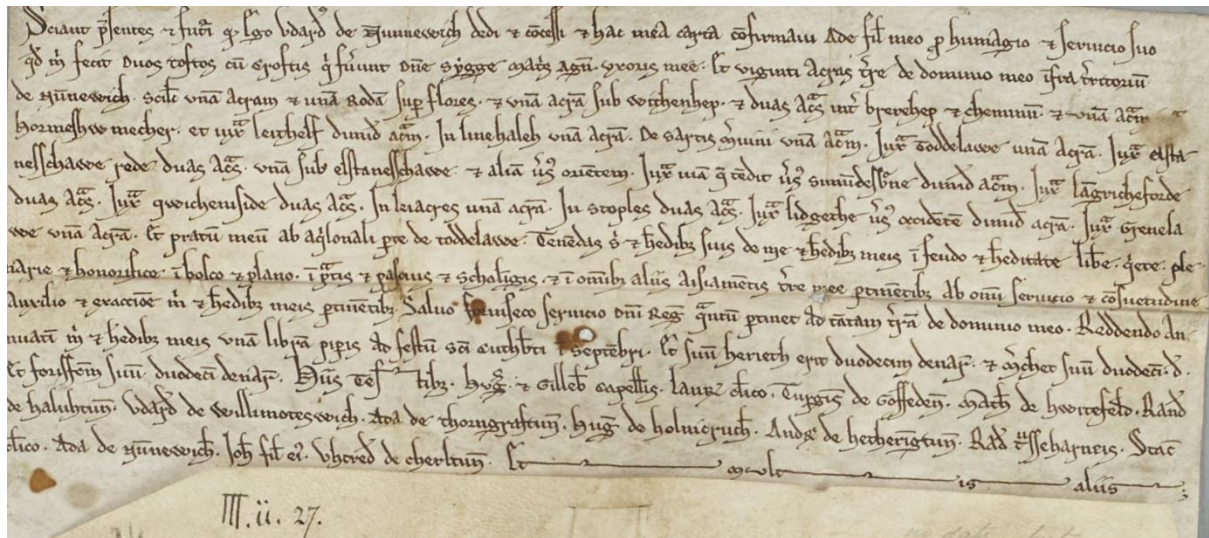 Sciant p̄sentes ⁊ futi̾ qd̾ Ego Vdard᾿ de Nunnewich dedi ⁊ c̄cessi ⁊ hac mea carta c̄firmaui Ade fil̾ meo p̱ humagio ⁊ seruicio suo
qd̾ m̄ fecit Duos toftos cū croftis q̄ fuer̄unt Dn̄e Sygge mat̾s Agn̾. vxoris mee. Et viginti acras t̾re de dominio meo īfra t̾ritoriū
de Nūnewich. Scilic̾ vnā Acram ⁊ unā Rodā sup̱ flores. ⁊ vnā acrā sub wichenhep. ⁊ duas ac̾s int̾ brerehep ⁊ cheminū. ⁊ vnā ac̾m
hormeshwmecher. et iux̾ leithelf dimid̾ ac̾m. In linehaleh vnā acrā. De sartis m̾uini vnā ac̾m. Iux̾ Toddelawe unā acrā. Iux̾ elsta
nesschawe rede duas ac̾s. vnā sub elstanesschawe ⁊ aliā v̾s̾ oriētem. Iux̾ uiā q̄ tēdit v̾s̾ simūdesb̾ne dimid̾ ac̾m. Iux̾ lāgricheforde
duas ac̾s. Iux̾ qwichenside duas ac̾s. In leiacres unā acrā. In stoples duas ac̾s. Iux̾ lidgethe v̾s̾ occidētē dimid̾ acrā. Iux̾ Grenela
we vnā acrā. Et pratū meū ab aq̾lonali p̱te de toddelawe. Tenēdas s̾ ⁊ h̾edibȝ suis de me ⁊ h̾edibȝ meis ī feudo ⁊ h̾editate lib̾e. q̾ete. ple
narie ⁊ honorifice. ī bosco ⁊ plano. ī p̾tis ⁊ pascuis ⁊ schalīgis. ⁊ ī om̄ibȝ aliis aisiamētis t̾re mee p̱tinētibȝ Ab om̄i seruicio ⁊ c̄suetudine
Auxilio ⁊ exacciōe m̄ ⁊ h̾edibȝ meis p̱tinētibȝ. Saluo forinseco seruicio Dn̄i Reḡ q̾ntū p̱tinet ad tātam t̾rā de dominio meo. Reddendo An
nuatī m̄ ⁊ h̾edibȝ meis vnā librā pip̱is ad festū sc̄i Cuthb̾ti ī septēbri. Et suū herieth erit duodecim denar̾. ⁊ m̾chet suū duodecī. d̾.
Et forisf̾cm suū duodecī denar̾. Hiis Testibȝ. Hug̾. ⁊ Gilleb̾ Capell̾is. Laur̾ cl̾ico. Turgis̾ de Goffeden̾. Math̾ de hwitefeld̾. Rand̾
de haluhtun̾. Vdard̾ de Willimoteswich. Ada de thorngraftun̾. Hug̾ de holmcruch̾. Andr̾ de hetherīgtun̾. Rad̾ t̾sseharneis. Stac̾
cl̾ico. Ada de Nūnewich̾. Joh̾ fil̾ ei᾿. Vhtred̾ de cherltun̾. Et mult is aliis
III. ii. 27.